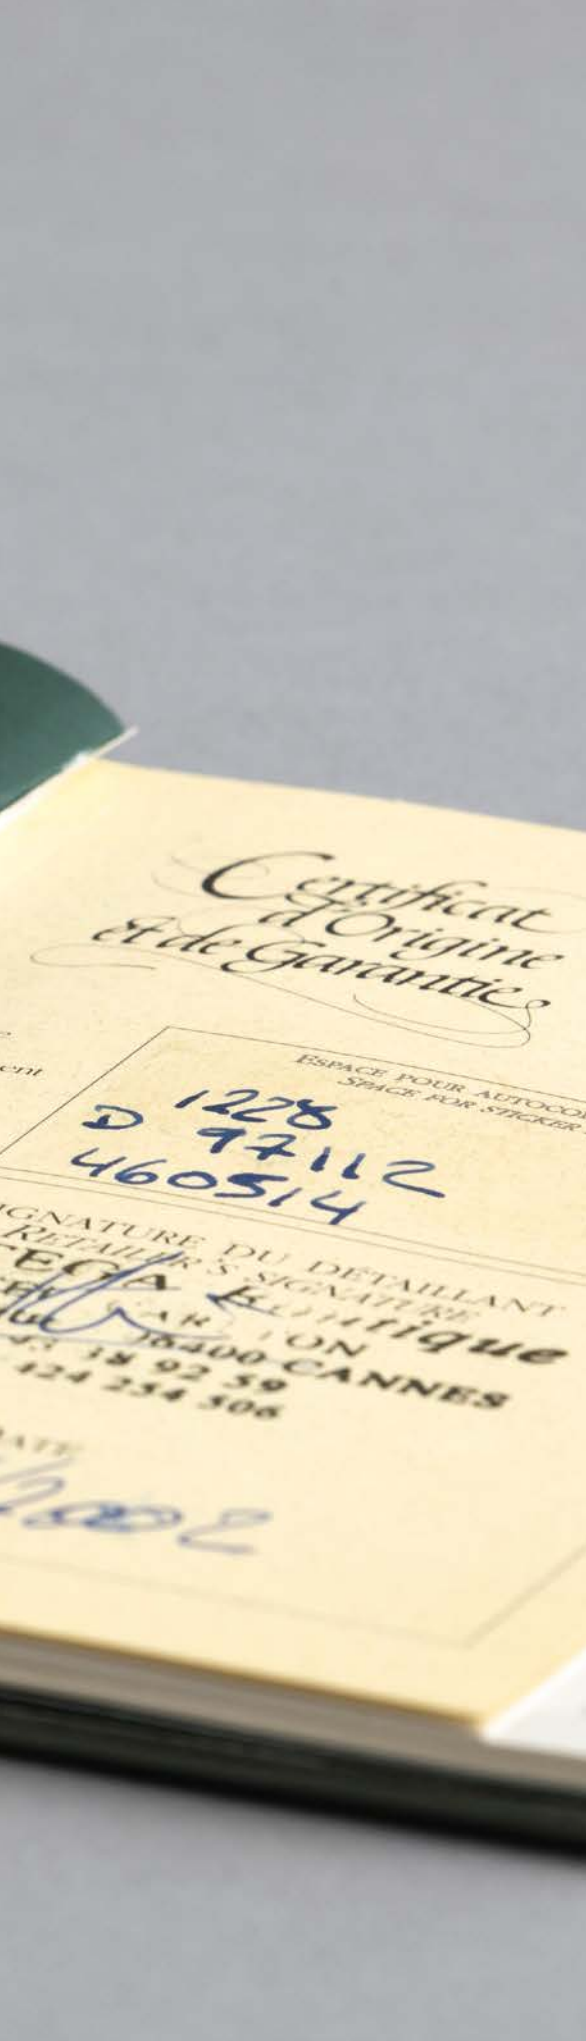 Certificat
d'Origine
et de Garantie
ESPACE POUR
SPACE FOR STICKER
1228
D 97112
460514
SIGNATURE DU DÉTAILLANT
RETAILER'S SIGNATURE
Boutique
06400 CANNES
18 92 59
424 254 506
DATE
/2002